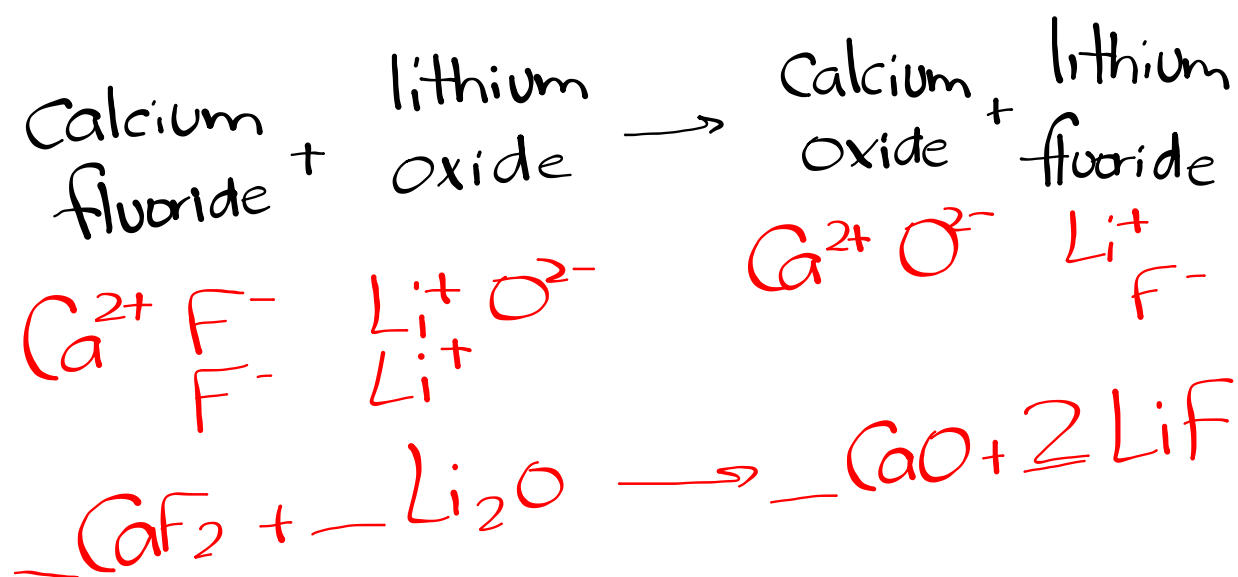 Calcium fluoride + lithium oxide → Calcium oxide + lithium fluoride
Ca²⁺ F⁻ Li⁺ O²⁻ Ca²⁺ O²⁻ Li⁺
F⁻ Li⁺ F⁻
_CaF₂ + _Li₂O → _CaO + 2LiF